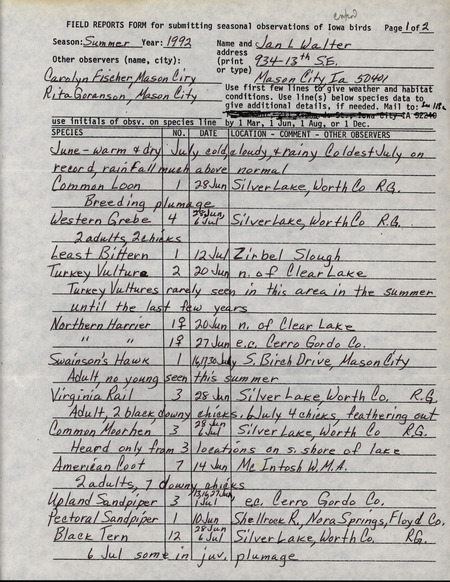 copied
FIELD REPORTS FORM for submitting seasonal observations of Iowa birds Page 1 of 2
Season: Summer Year: 1992 Name and Jan L Walter
address
Other observers (name, city): (print 934-13th S.E.
or type)
Carolyn Fischer, Mason City Mason City, Ia 50401
Rita Goranson, Mason City
Use first few lines to give weather and habitat
conditions. Use line(s) below species data to
give additional details, if needed. Mail to:
Iowa City IA 52240
use initials of obsv. on species line by 1 Mar, 1 Jun, 1 Aug, or 1 Dec.
SPECIES NO. DATE LOCATION - COMMENT - OTHER OBSERVERS
June - warm & dry July cold, cloudy, & rainy Coldest July on
record, rainfall much above normal
Common Loon 1 28 Jun Silver Lake, Worth Co R.G.
Breeding plumage
Western Grebe 4 28 Jun 6 Jul Silver Lake, Worth Co R.G.
2 adults, 2 chicks
Least Bittern 1 12 Jul Zirbel Slough
Turkey Vulture 2 20 Jun n. of Clear Lake
Turkey Vultures rarely seen in this area in the summer
until the last few years
Northern Harrier 1♀ 20 Jun n. of Clear Lake
" " 1♀ 27 Jun e.c. Cerro Gordo Co.
Swainson's Hawk 1 16,17,30 July S. Birch Drive, Mason City
Adult, no young seen this summer
Virginia Rail 3 28 Jun Silver Lake, Worth Co. R.G.
Adult, 2 black downy chicks. 6 July 4 chicks, feathering out
Common Moorhen 3 28 Jun 6 Jul Silver Lake, Worth Co R.G.
Heard only from 3 locations on s. shore of lake
American Coot 7 14 Jun McIntosh W.M.A.
2 adults, 7 downy chicks
Upland Sandpiper 3 1 Jul e.c. Cerro Gordo Co.
Pectoral Sandpiper 1 10 Jun Shellrock R., Nora Springs, Floyd Co.
Black Tern 12 28 Jun 6 Jul Silver Lake, Worth Co. R.G.
6 Jul some in juv. plumage